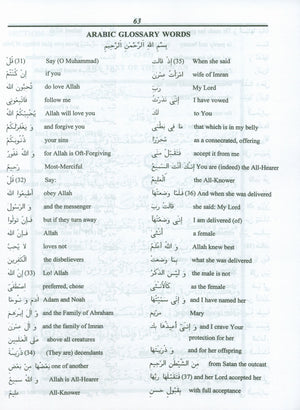 63
ARABIC GLOSSARY WORDS
بِسْمِ اللهِ الرَّحْمٰنِ الرَّحِيْمِ
Say (O Muhammad) (31) قُلْ
if you إِنْ كُنْتُمْ
do love Allah تُحِبُّونَ اللهَ
follow me فَاتَّبِعُونِى
Allah will love you يُحْبِبْكُمُ اللهُ
and forgive you وَ يَغْفِرْلَكُمْ
your sins ذُنُوبَكُمْ
for Allah is Oft-Forgiving وَ اللهُ غَفُورٌ
Most-Merciful رَحِيمٌ
Say: (32) قُلْ
obey Allah أَطِيعُوا اللهَ
and the messenger وَ الرَّسُولَ
but if they turn away فَإِنْ تَوَلَّوْا
Allah فَإِنَّ اللهَ
loves not لَا يُحِبُّ
the disbelievers الْكَٰفِرِينَ
Lo! Allah (33) إِنَّ اللهَ
preferred, chose اصْطَفَىٰ
Adam and Noah آدَمَ وَ نُوحًا
and the Family of Abraham وَ آلَ إِبْرَٰهِيمَ
and the family of Imran وَ آلَ عِمْرَٰنَ
above all creatures عَلَى الْعَٰلَمِينَ
(They are) decendants (34) ذُرِّيَّةً
one of another بَعْضُهَا مِنْ بَعْضٍ
Allah is All-Hearer وَ اللهُ سَمِيعٌ
All-Knower عَلِيمٌ
When she said (35) إِذْ قَالَتِ
wife of Imran امْرَأَتُ عِمْرَٰنَ
My Lord رَبِّ
I have vowed إِنِّى نَذَرْتُ
to You لَكَ
that which is in my belly مَا فِى بَطْنِى
as a consecrated, offering مُحَرَّرًا
accept it from me فَتَقَبَّلْ مِنِّى
You are (indeed) the All-Hearer إِنَّكَ أَنْتَ السَّمِيعُ
the All-Knower الْعَلِيمُ
And when she was delivered (36) فَلَمَّا وَضَعَتْهَا
she said: My Lord قَالَتْ رَبِّ
I am delivered (of) إِنِّى وَضَعْتُهَا
a female أُنْثَىٰ
Allah knew best وَ اللهُ أَعْلَمُ
what she was delivered بِمَا وَضَعَتْ
the male is not وَ لَيْسَ الذَّكَرُ
as the female كَالْأُنْثَىٰ
and I have named her وَ إِنِّى سَمَّيْتُهَا
Mary مَرْيَمَ
and I crave Your وَ إِنِّى أُعِيذُهَا بِكَ
protection for her
and for her offspring وَ ذُرِّيَّتَهَا
from Satan the outcast مِنَ الشَّيْطَٰنِ الرَّجِيمِ
and her Lord accepted her (37) فَتَقَبَّلَهَا رَبُّهَا
with full acceptance بِقَبُولٍ حَسَنٍ